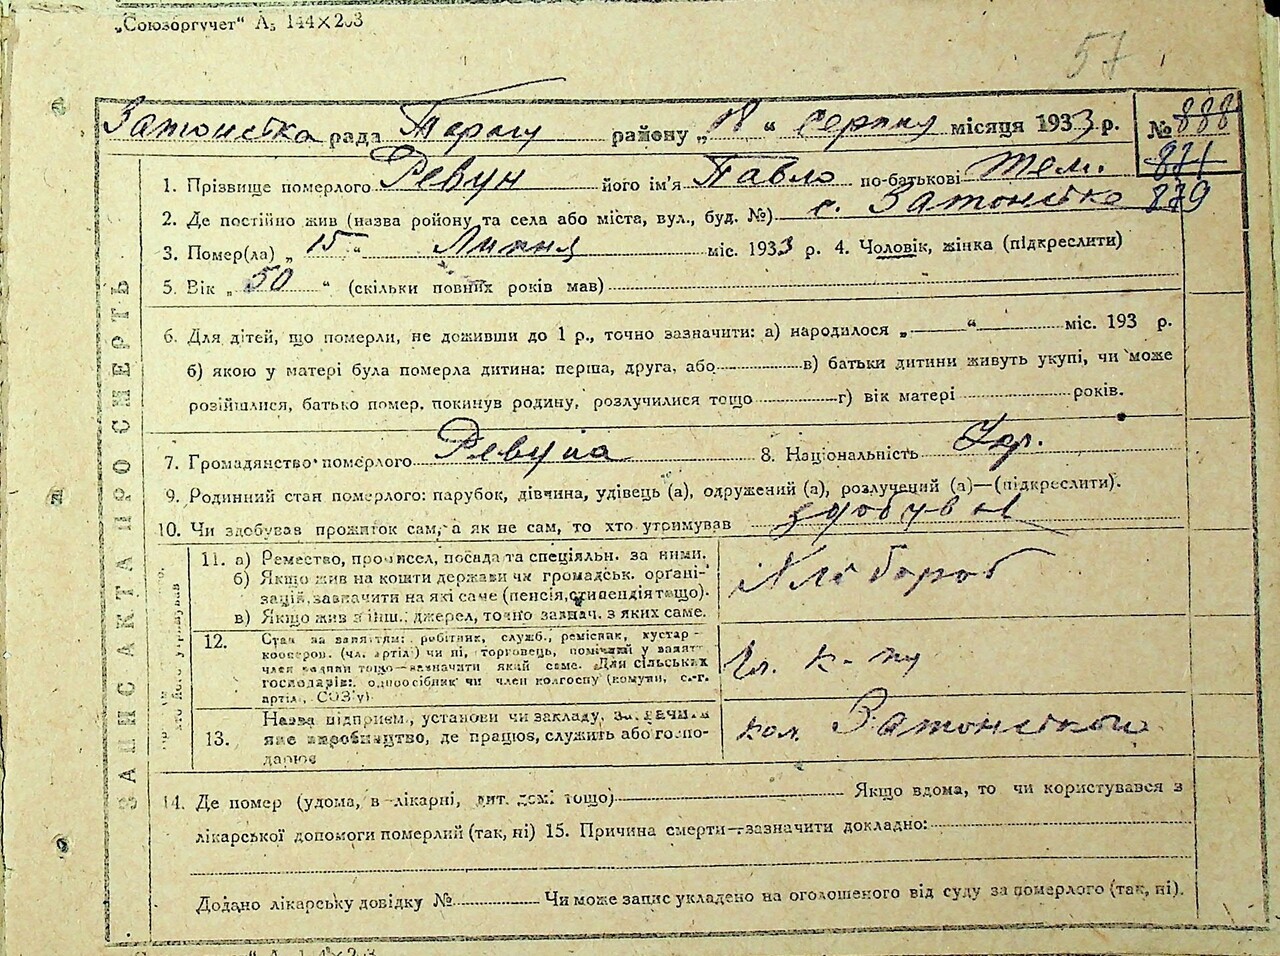 „Союзоргучет“ А₅ 144×203
57
Затонська рада району „18“ серпня місяця 1933 р. № 888
871
1. Прізвище померлого Ревун його ім'я Павло по-батькові Тем.
2. Де постійно жив (назва ройону та села або міста, вул., буд. №) с. Затонська 879
3. Помер(ла) „15“ Липня міс. 1933 р. 4. Чоловік, жінка (підкреслити)
5. Вік „50“ (скільки повних років мав)
6. Для дітей, що померли, не доживши до 1 р., точно зазначити: а) народилося „ “ міс. 193 р.
б) якою у матері була померла дитина: перша, друга, або в) батьки дитини живуть укупі, чи може
розійшлися, батько помер, покинув родину, розлучилися тощо г) вік матері років.
7. Громадянство померлого 8. Національність Укр.
9. Родинний стан померлого: парубок, дівчина, удівець (а), одружений (а), розлучений (а)—(підкреслити).
10. Чи здобував прожиток сам, а як не сам, то хто утримував здобував
11. а) Ремество, промисел, посада та спеціяльн. за ними.
б) Якщо жив на кошти держави чи громадськ. орґані-
зацій, зазначити на які саме (пенсія, стипендія тощо).
в) Якщо жив з інш. джерел, точно зазнач. з яких саме.
Хлібороб
12. Стан за заняттям: робітник, служб., ремісник, кустар-
кооперов. (чл. артілі) чи ні, торговець, поміщий у занят.
член родини тощо—зазначити який саме. Для сільських
господарів: одноосібник чи член колгоспу (комуни, с.-г.
артілі, СОЗ'у).
Чл. к-пу
13. Назва підприєм., установи чи закладу, зазначити
яке виробництво, де працює, служить або госпо-
дарює
кол. Затонської
ЗАПИС АКТА ПРО СМЕРТЬ
14. Де помер (удома, в лікарні, пит. домі тощо) Якщо вдома, то чи користувався з
лікарської допомоги померлий (так, ні) 15. Причина смерти—зазначити докладно:
Додано лікарську довідку № Чи може запис укладено на оголошеного від суду за померлого (так, ні).